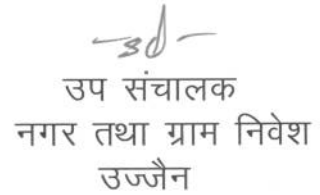 -sd-
उप संचालक
नगर तथा ग्राम निवेश
उज्जैन